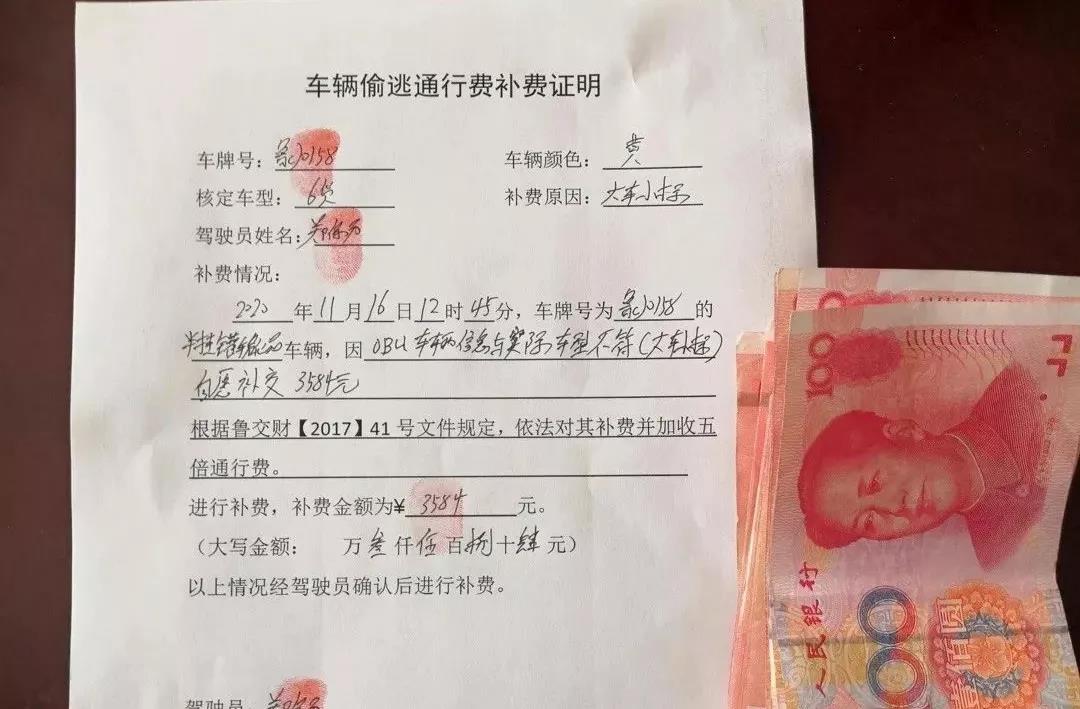 车辆偷逃通行费补费证明
车牌号： 车辆颜色：黄
核定车型：6货 补费原因：大车小标
驾驶员姓名：
补费情况：
2020年11月16日12时45分，车牌号为 的
车辆，因OBU车辆信息与实际车型不符(大车小标)
自愿补交3584元
根据鲁交财【2017】41号文件规定，依法对其补费并加收五
倍通行费。
进行补费，补费金额为¥3584元。
（大写金额： 万叁仟伍百捌十肆元）
以上情况经驾驶员确认后进行补费。
驾驶员
100
人民银行
00
壹佰圆